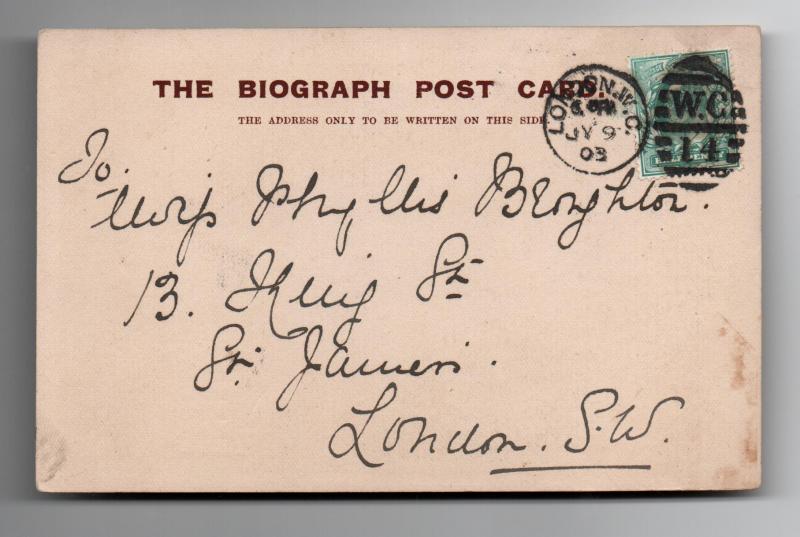 THE BIOGRAPH POST CARD.
THE ADDRESS ONLY TO BE WRITTEN ON THIS SIDE
LONDON.W.C.
JY 9
03
W.C.
14
To
Miss Phyllis Broughton.
13. King St
St. James's.
London. S.W.